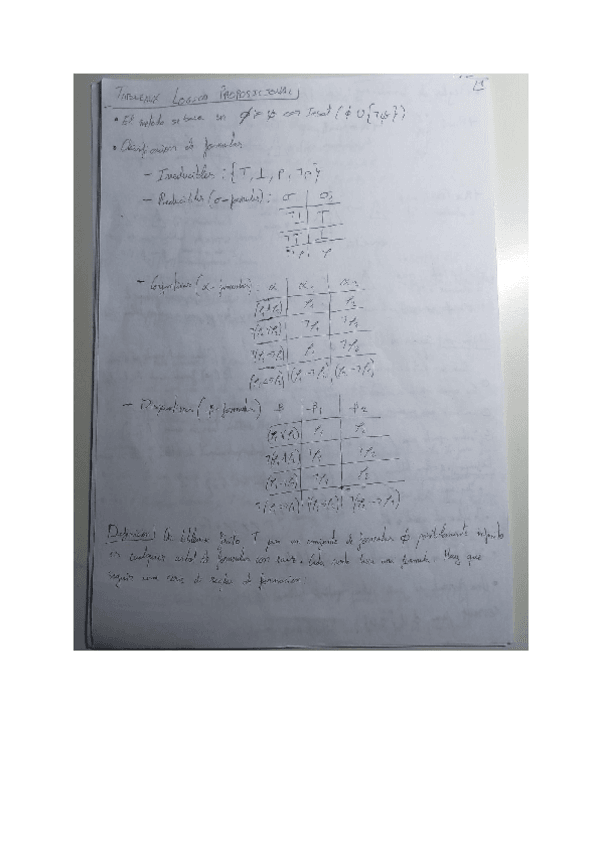 TABLEAUX LÓGICA PROPOSICIONAL
• El método se basa en φ ⊨ ψ Insat (φ ∪ {¬ψ})
• Clasificación de fórmulas
– Irreducibles: {T, ⊥, p, ¬p}
– Reducibles (σ-fórmulas): σ σ₁
¬⊥ T
¬T ⊥
– Conjuntivas (α-fórmulas) α α₁ α₂
(φ₁∧φ₂) φ₁ φ₂
¬(φ₁∨φ₂) ¬φ₁ ¬φ₂
¬(φ₁→φ₂) φ₁ ¬φ₂
– Disyuntivas (β-fórmulas) β β₁ β₂
(φ₁∨φ₂) φ₁ φ₂
¬(φ₁∧φ₂) ¬φ₁ ¬φ₂
(φ₁→φ₂) ¬φ₁ φ₂
Definición: Un tableau T para un conjunto de fórmulas φ posiblemente
es cualquier árbol de fórmulas con cada nodo una fórmula. Hay que
seguir una serie de reglas de formación